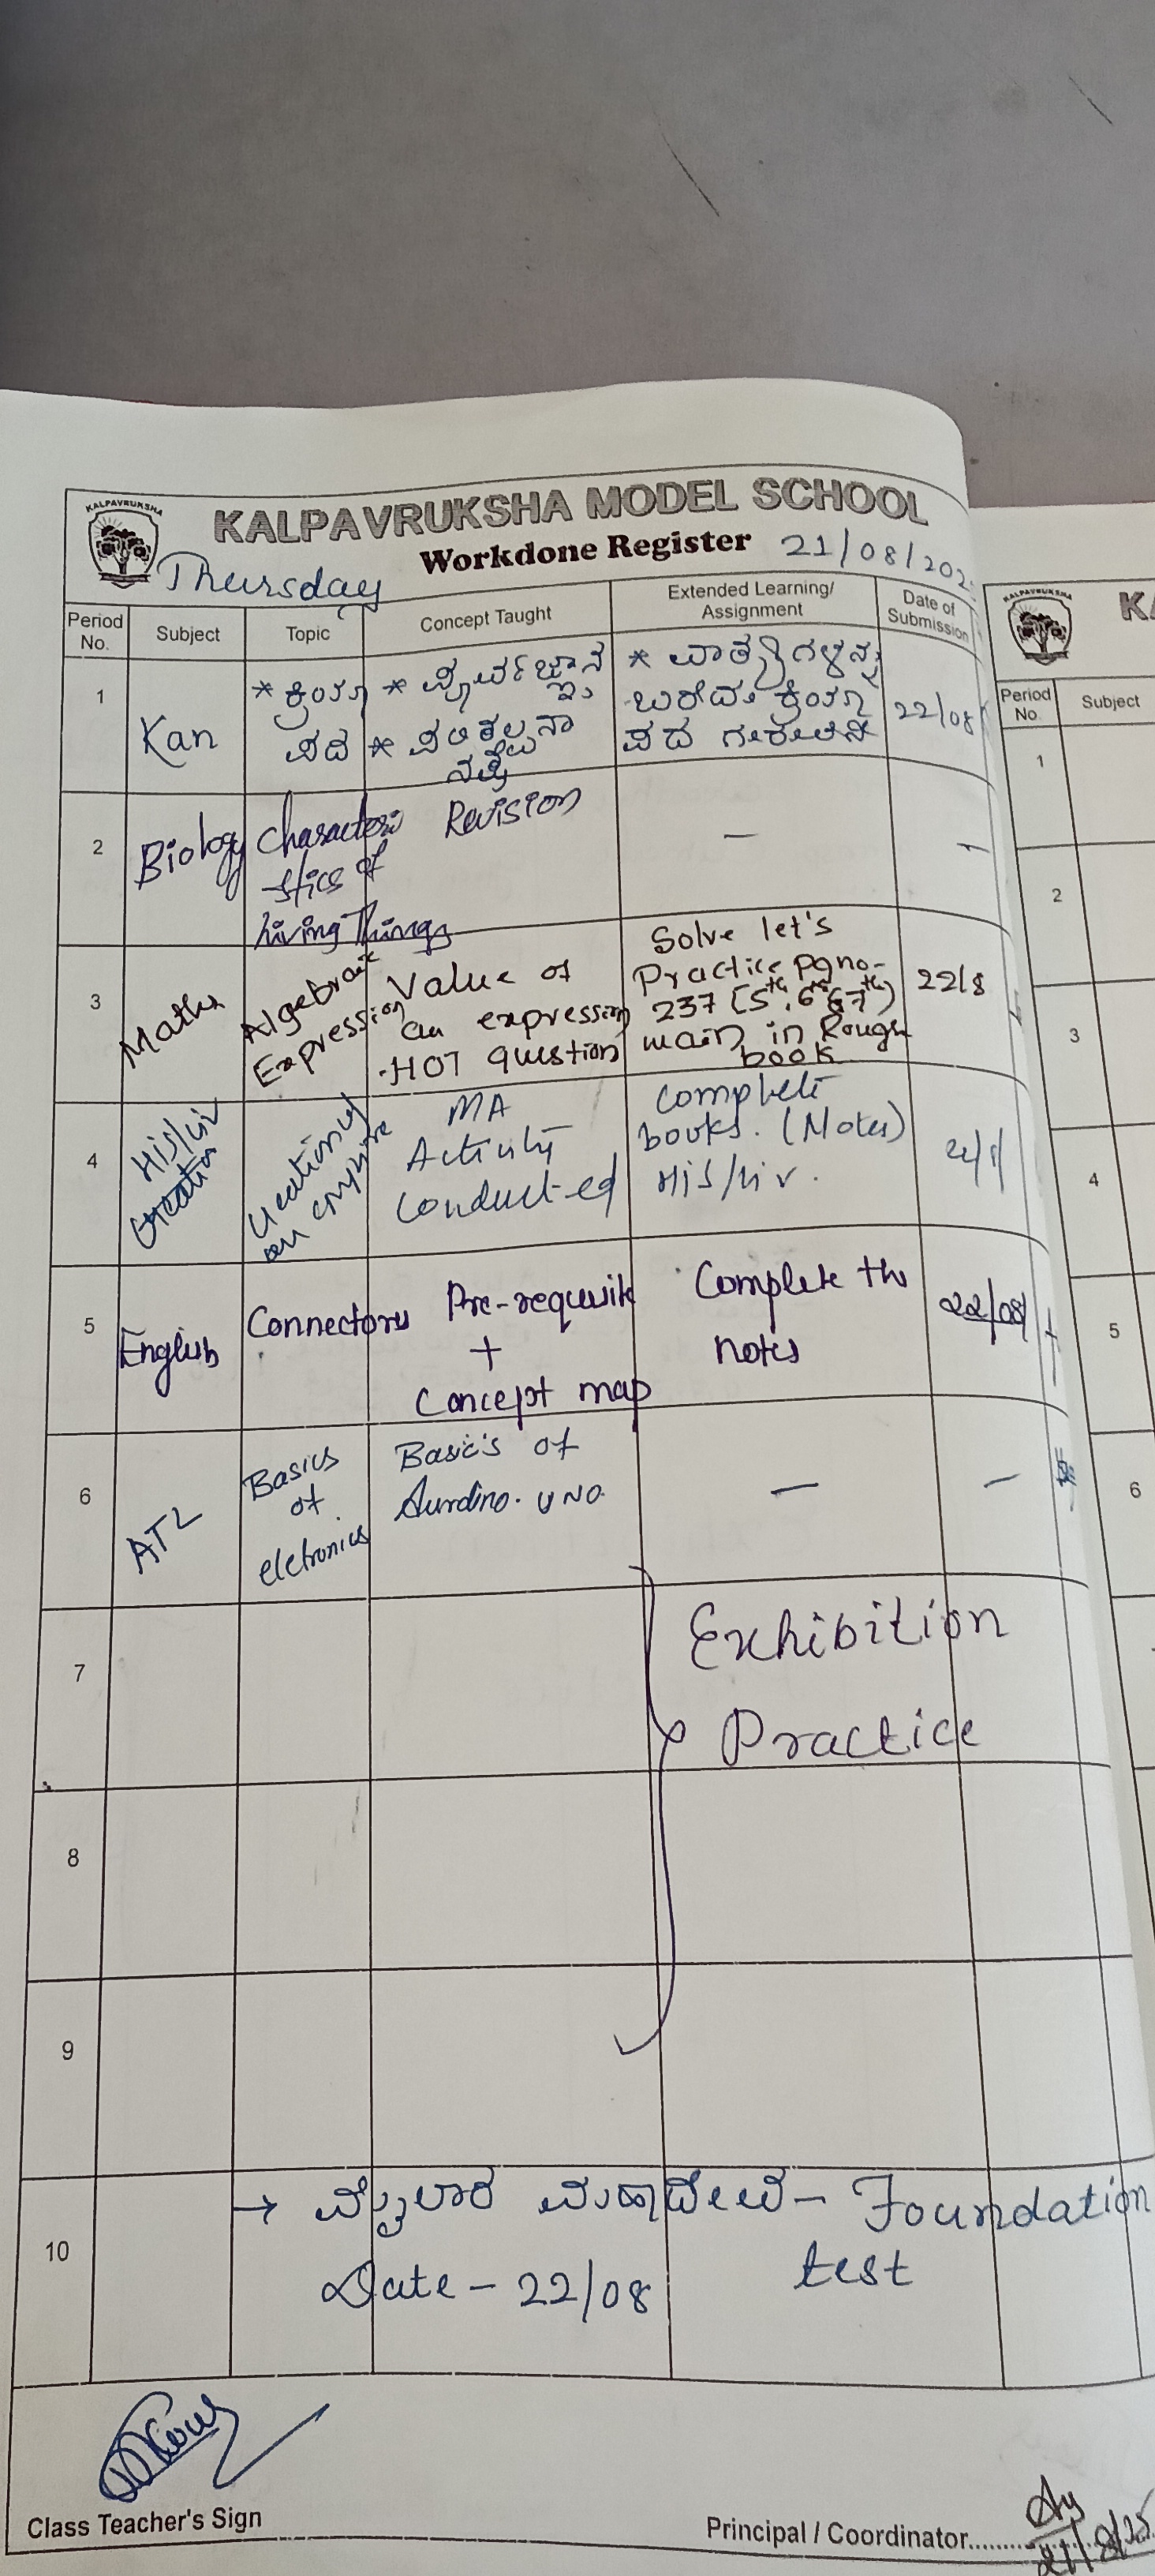 KALPAVRUKSHA
KALPAVRUKSHA MODEL SCHOOL
Workdone Register 21/08/202
Thursday
Period No. Subject Topic Concept Taught Extended Learning/ Assignment Date of Submission
1 Kan
* ಕ್ರಿಯಾ ಪದ
* ಪೂರ್ವಜ್ಞಾನ
* ಪರಿಕಲ್ಪನಾ ನಕ್ಷೆ
* ವಾಕ್ಯಗಳನ್ನು
ಬರೆದು ಕ್ರಿಯಾ
ಪದ ಗುರುತಿಸಿ
22/08
2 Biology
Characteri
-stics of
Living Things
Revision
—
—
3 Maths
Algebraic
Expression
Value of
an expression
-HOT question
Solve let's
Practice pgno-
237 (5th, 6th & 7th)
main in Rough
book
22/8
4 His/civ
an empire
MA
Activity
Conducted
Complete
books. (Notes)
His/civ.
5 English
Connectors
Pre-requisite
+
Concept map
Complete the
notes
22/08
6 ATL
Basics
of
eletronics
Basic's of
Aurdino. UNO.
—
—
7
Exhibition
Practice
8
9
10
→ ಮಹಾದೇವ - Foundation
Date - 22/08 test
Class Teacher's Sign
Principal / Coordinator
21/8/25
KALPAVRUKSHA
KA
Period No. Subject
1
2
3
4
5
6